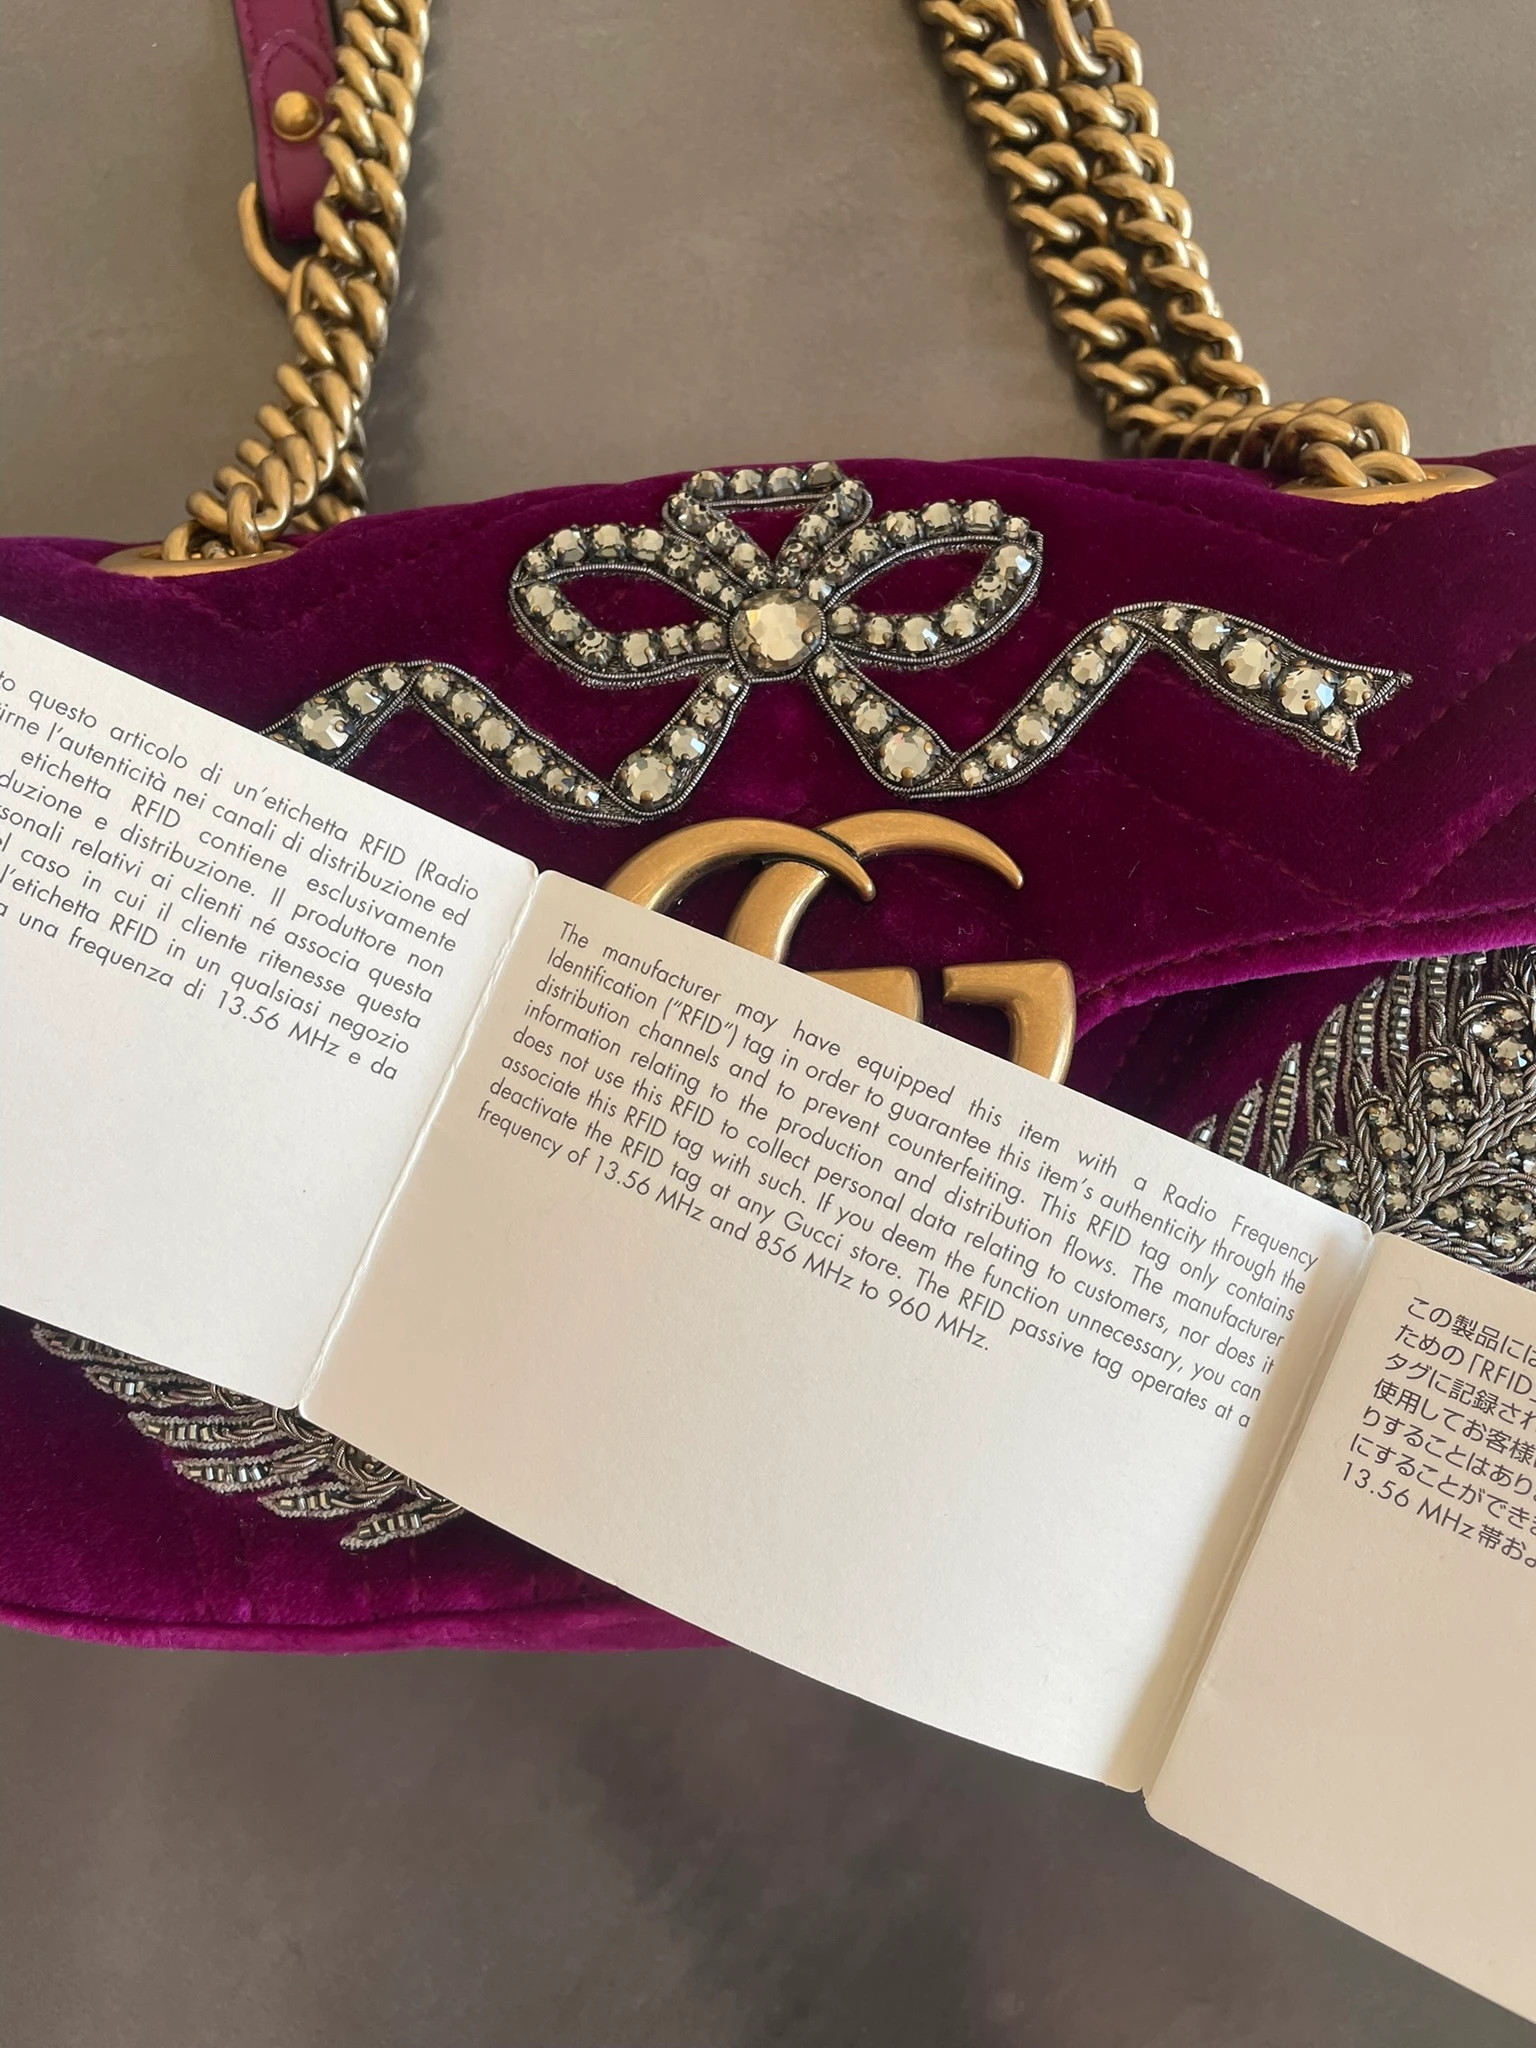 to questo articolo di un'etichetta RFID (Radio
irne l'autenticità nei canali di distribuzione ed
etichetta RFID contiene esclusivamente
duzione e distribuzione. Il produttore non
sonali relativi ai clienti né associa questa
el caso in cui il cliente ritenesse questa
l'etichetta RFID in un qualsiasi negozio
a una frequenza di 13.56 MHz e da
The manufacturer may have equipped this item with a Radio Frequency
Identification ("RFID") tag in order to guarantee this item's authenticity through the
distribution channels and to prevent counterfeiting. This RFID tag only contains
information relating to the production and distribution flows. The manufacturer
does not use this RFID to collect personal data relating to customers, nor does it
associate this RFID tag with such. If you deem the function unnecessary, you can
deactivate the RFID tag at any Gucci store. The RFID passive tag operates at a
frequency of 13.56 MHz and 856 MHz to 960 MHz.
この製品には
ための「RFID
タグに記録され
使用してお客様
りすることはあり
にすることができ
13.56 MHz帯およ